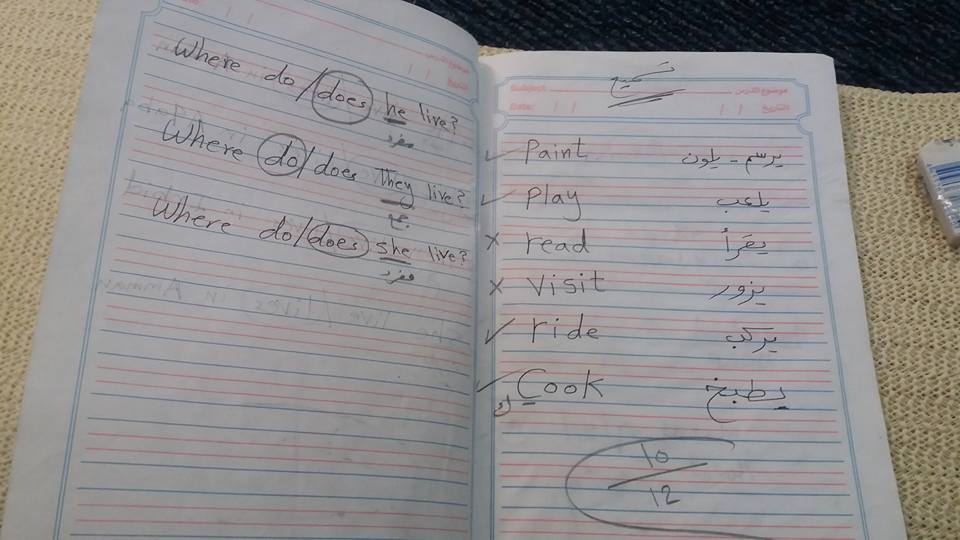 Where do/does he live?
مفرد
Where do/does they live?
جمع
Where do/does she live?
مفرد
تسميع
Subject:
موضوع الدرس
Date: / /
التاريخ / /
✓ Paint يرسم - يلون
✓ Play يلعب
x read يقرأ
x Visit يزور
✓ ride يركب
✓ Cook يطبخ
ك
10
12